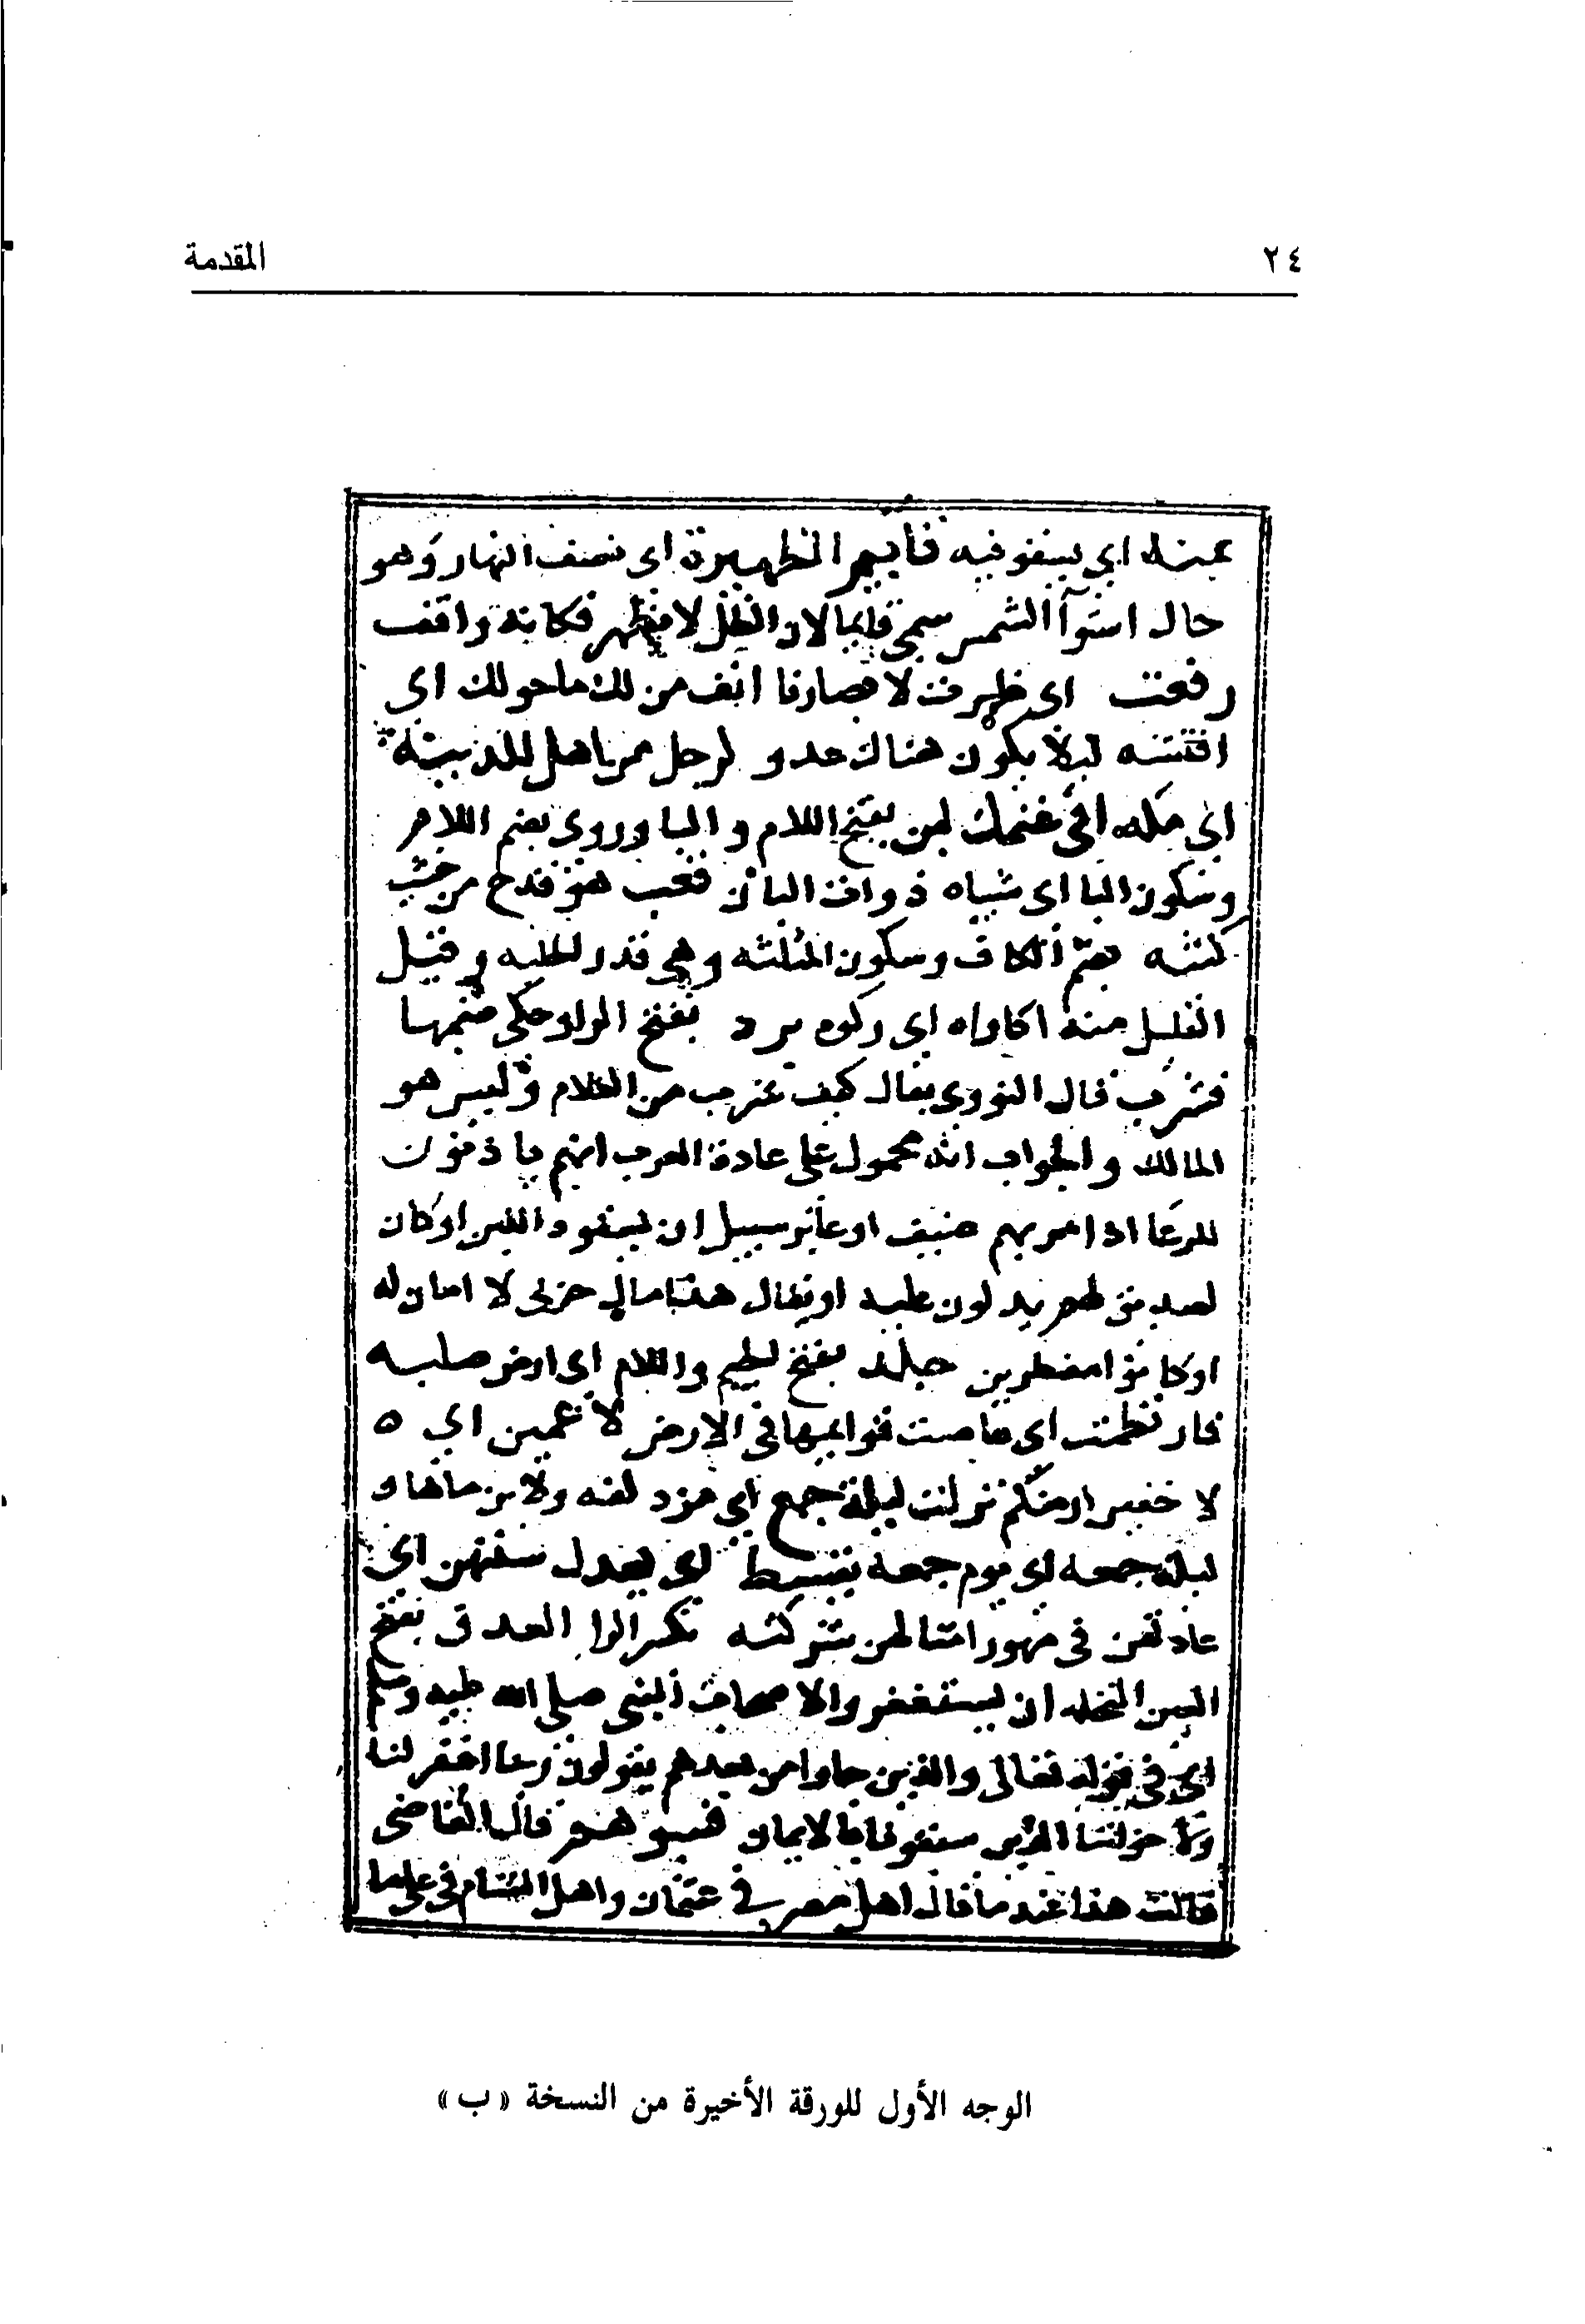 ٢٤
المقدمة
ثمنه اي يستوفيه قايم الظهيرة اي نصف النهار وهو
حال استوآ الشمس سمي قايما لان الظل لا يظهر فكانه واقف
رفعت اي ظهرت لابصارنا انفض لك ما حولك اي
افتشه ليلا يكون هناك عدو لرجل من اهل المدينة
اي مكه افي غنمك لبن بفتح اللام والبا وروي بضم اللام
وسكون البا اي شياه ذوات البان قعب هو قدح من خشب
كثبه بضم الكاف وسكون المثلثه وهي قدر الحلبه وقيل
القليل منه اداواه اي ركوه برد بفتح الراو حكي ضمها
فشرب قال النووي يقال كيف شرب من الغلام وليس هو
المالك والجواب انه محمول على عادة العرب انهم ياذنون
للرعا اذا مر بهم ضيف او عابر سبيل ان يسقوه اللبن او كان
لصديق لهم يدلون عليه او يقال هذا مال حربي لا امان له
او كانوا مضطرين جلد بفتح الجيم واللام اي ارض صلبه
فارتطمت اي غاصت قوايمها في الارض لا عمين اي ٥
لا خفين امركم نزلت ليلة جمع اي مزدلفه ولابن ماهان
ليلة جمعه اي يوم جمعه بقسط اي بعدل سنتهن اي
عادتهن في مهور امثالهن شركته بكسر الرا العدق بفتح
العين النخله ان يستغفروا لاصحاب النبي صلى الله عليه وسلم
اي في قوله تعالى والذين جاوا من بعدهم يقولون ربنا اغفر لنا
ولاخواننا الذين سبقونا بالايمان فسبوهم قال القاضي
قالت هذا عند ما قال اهل مصر في عثمان واهل الشام في علي ما
الوجه الأول للورقة الأخيرة من النسخة «ب»